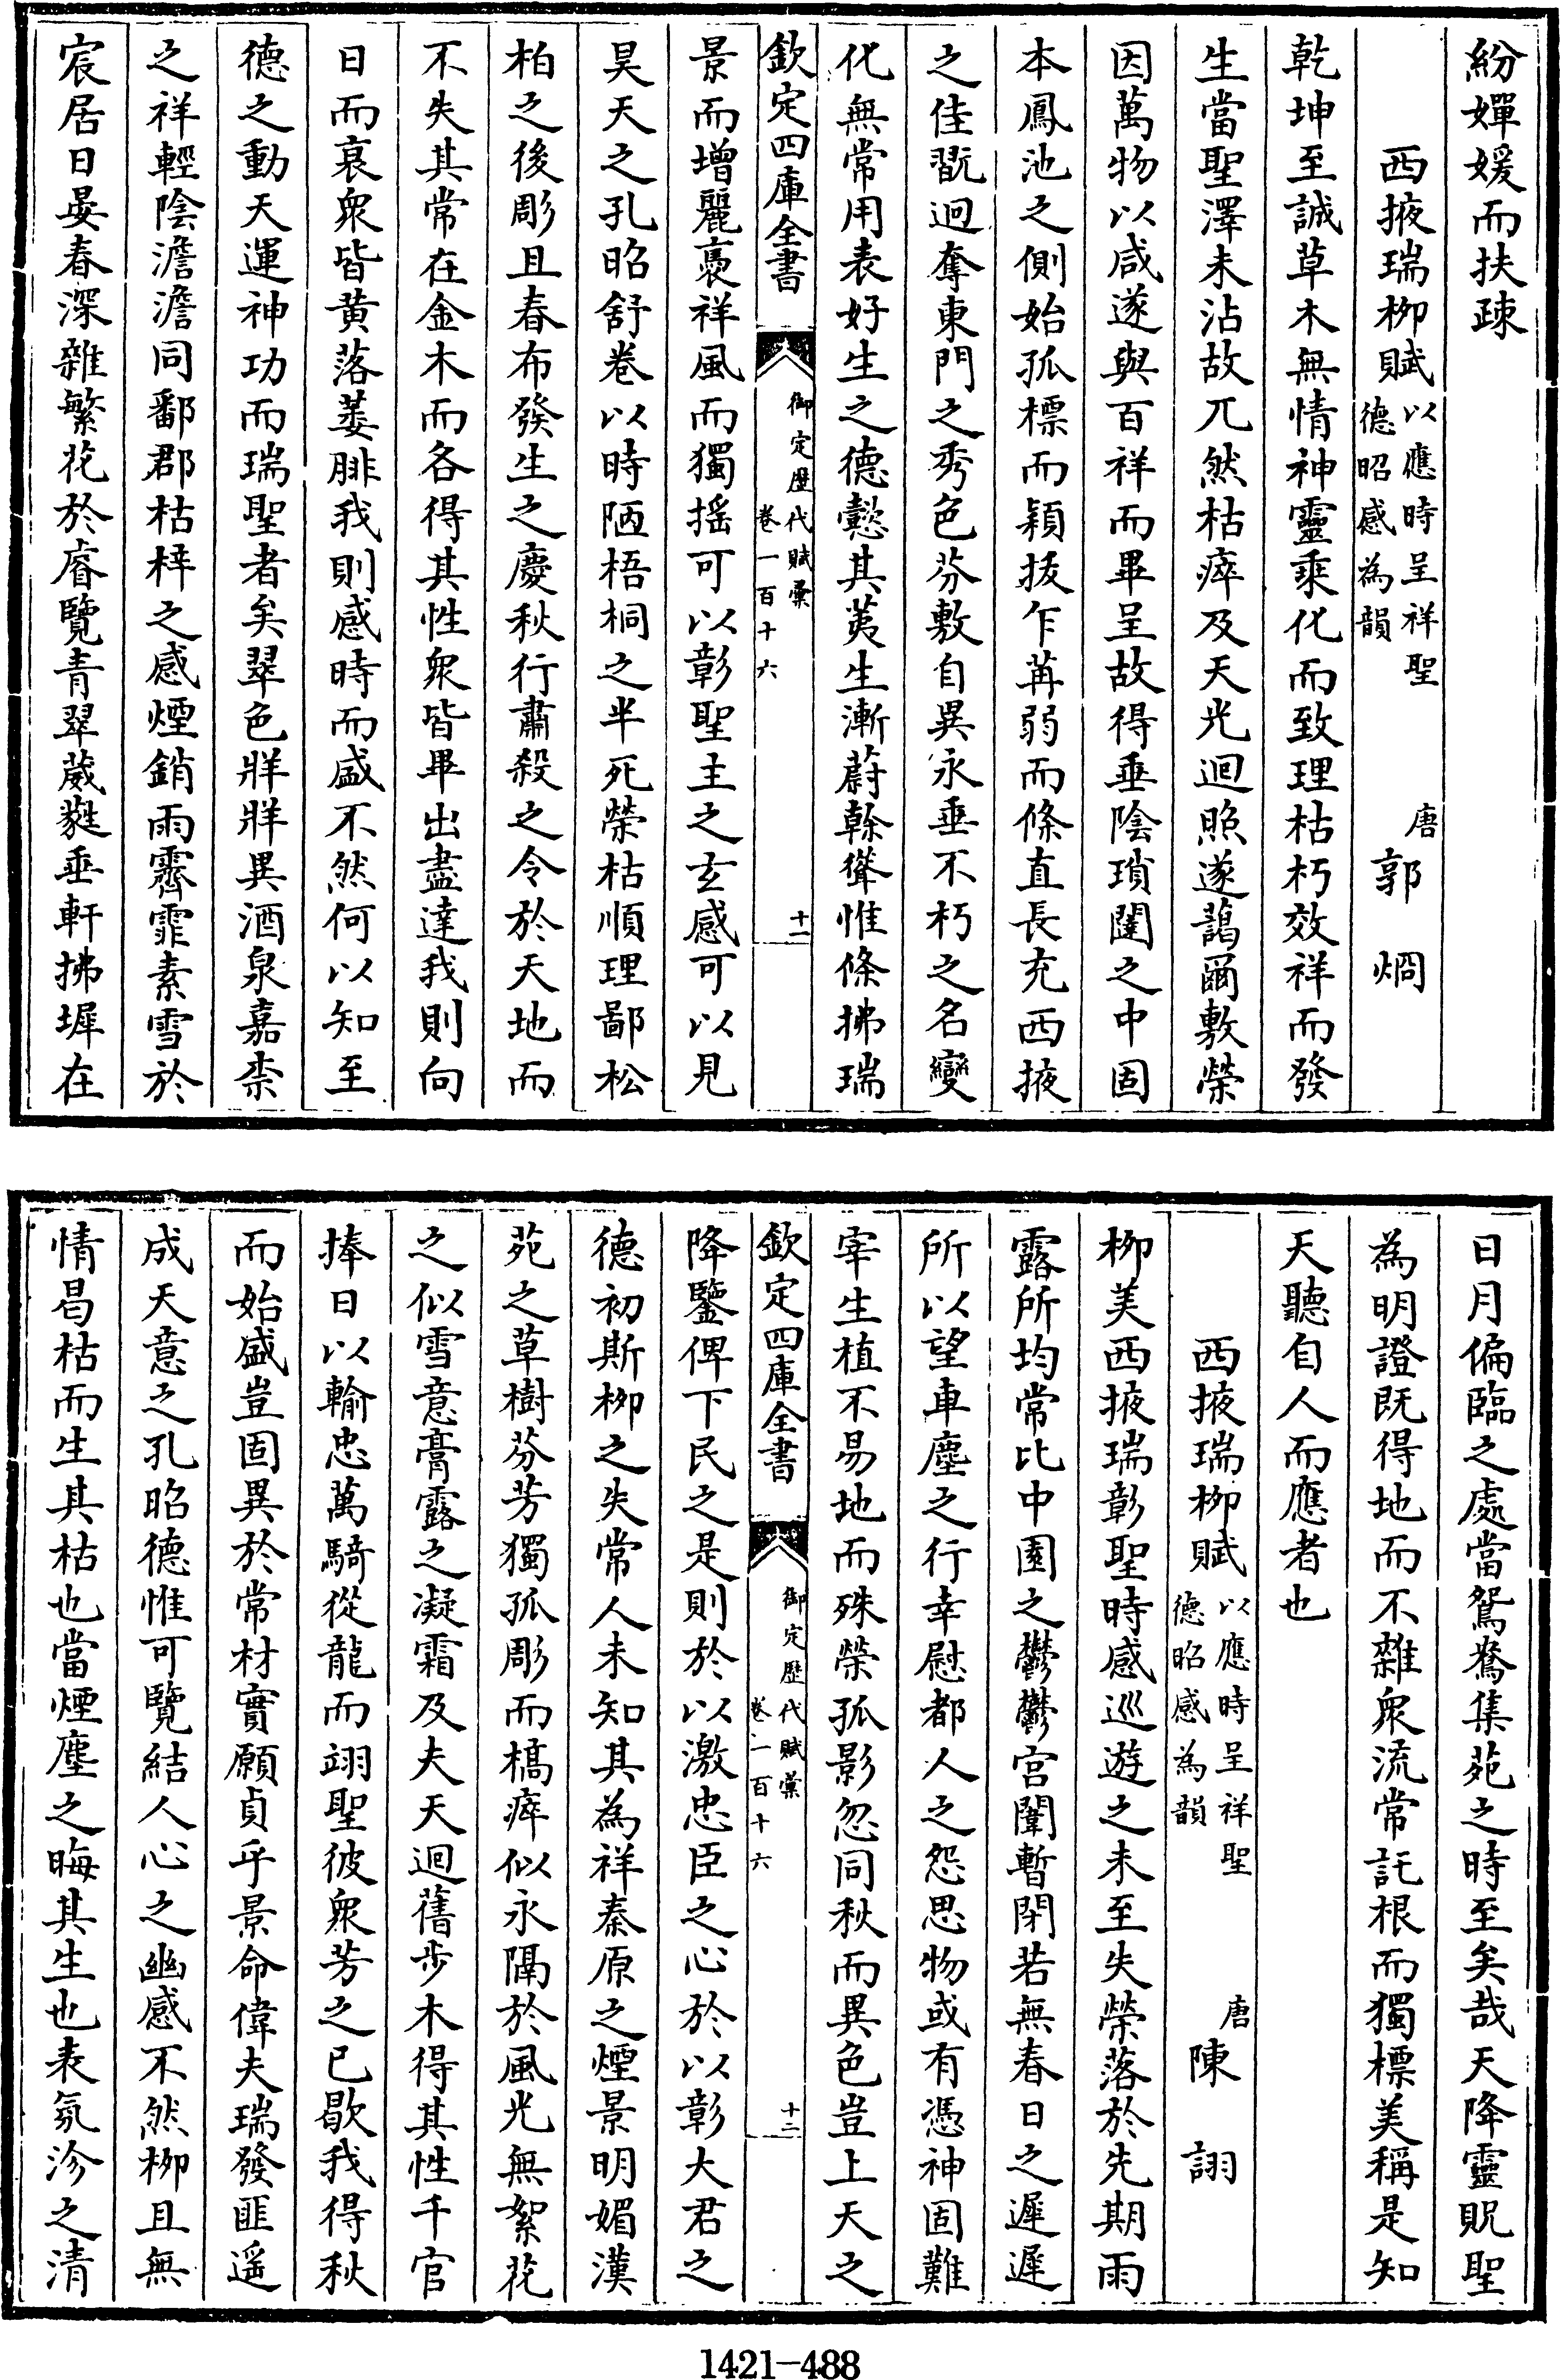 紛嬋媛而扶疎
西掖瑞柳賦以應時呈祥聖德昭感為韻 唐郭烱
乾坤至誠草木無情神靈乘化而致理枯朽效祥而發
生當聖澤未沾故兀然枯瘁及天光迴照遂藹爾敷榮
因萬物以咸遂與百祥而畢呈故得垂陰瑣闥之中固
本鳳池之側始孤標而穎拔乍苒弱而條直長充西掖
之佳翫迥奪東門之秀色芬敷自異永垂不朽之名變
化無常用表好生之德懿其荑生漸蔚幹聳惟條拂瑞
欽定四庫全書 御定歷代賦彙 卷一百十六 十一
景而增麗裛祥風而獨搖可以彰聖主之玄感可以見
昊天之孔昭舒卷以時陋梧桐之半死榮枯順理鄙松
柏之後彫且春布發生之慶秋行肅殺之令於天地而
不失其常在金木而各得其性衆皆畢出盡達我則向
日而衰衆皆黄落萎腓我則感時而盛不然何以知至
德之動天運神功而瑞聖者矣翠色牂牂異酒泉嘉柰
之祥輕陰澹澹同鄱郡枯梓之感煙銷雨霽霏素雪於
宸居日晏春深雜繁花於睿覽青翠葳蕤垂軒拂墀在
日月偏臨之處當鴛鴦集苑之時至矣哉天降靈貺聖
為明證既得地而不雜衆流常託根而獨標美稱是知
天聽自人而應者也
西掖瑞柳賦以應時呈祥聖德昭感為韻 唐陳詡
柳美西掖瑞彰聖時感巡遊之未至失榮落於先期雨
露所均常比中園之鬱鬱宫闈暫閉若無春日之遲遲
所以望車塵之行幸慰都人之怨思物或有憑神固難
宰生植不易地而殊榮孤影忽同秋而異色豈上天之
欽定四庫全書 御定歷代賦彙 卷一百十六 十二
降鑒俾下民之是則於以激忠臣之心於以彰大君之
德初斯柳之失常人未知其為祥秦原之煙景明媚漢
苑之草樹芬芳獨孤彫而槁瘁似永隔於風光無絮花
之似雪意膏露之凝霜及夫天迴舊步木得其性千官
捧日以輸忠萬騎從龍而翊聖彼衆芳之已歇我得秋
而始盛豈固異於常材實願貞乎景命偉夫瑞發匪遥
成天意之孔昭德惟可覽結人心之幽感不然柳且無
情曷枯而生其枯也當煙塵之晦其生也表氛沴之清
1421-488